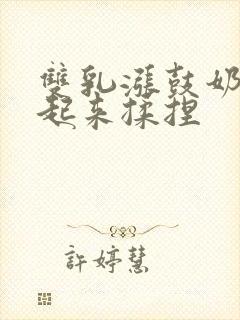 雙乳漲鼓奶
起来揉捏
許婷慧